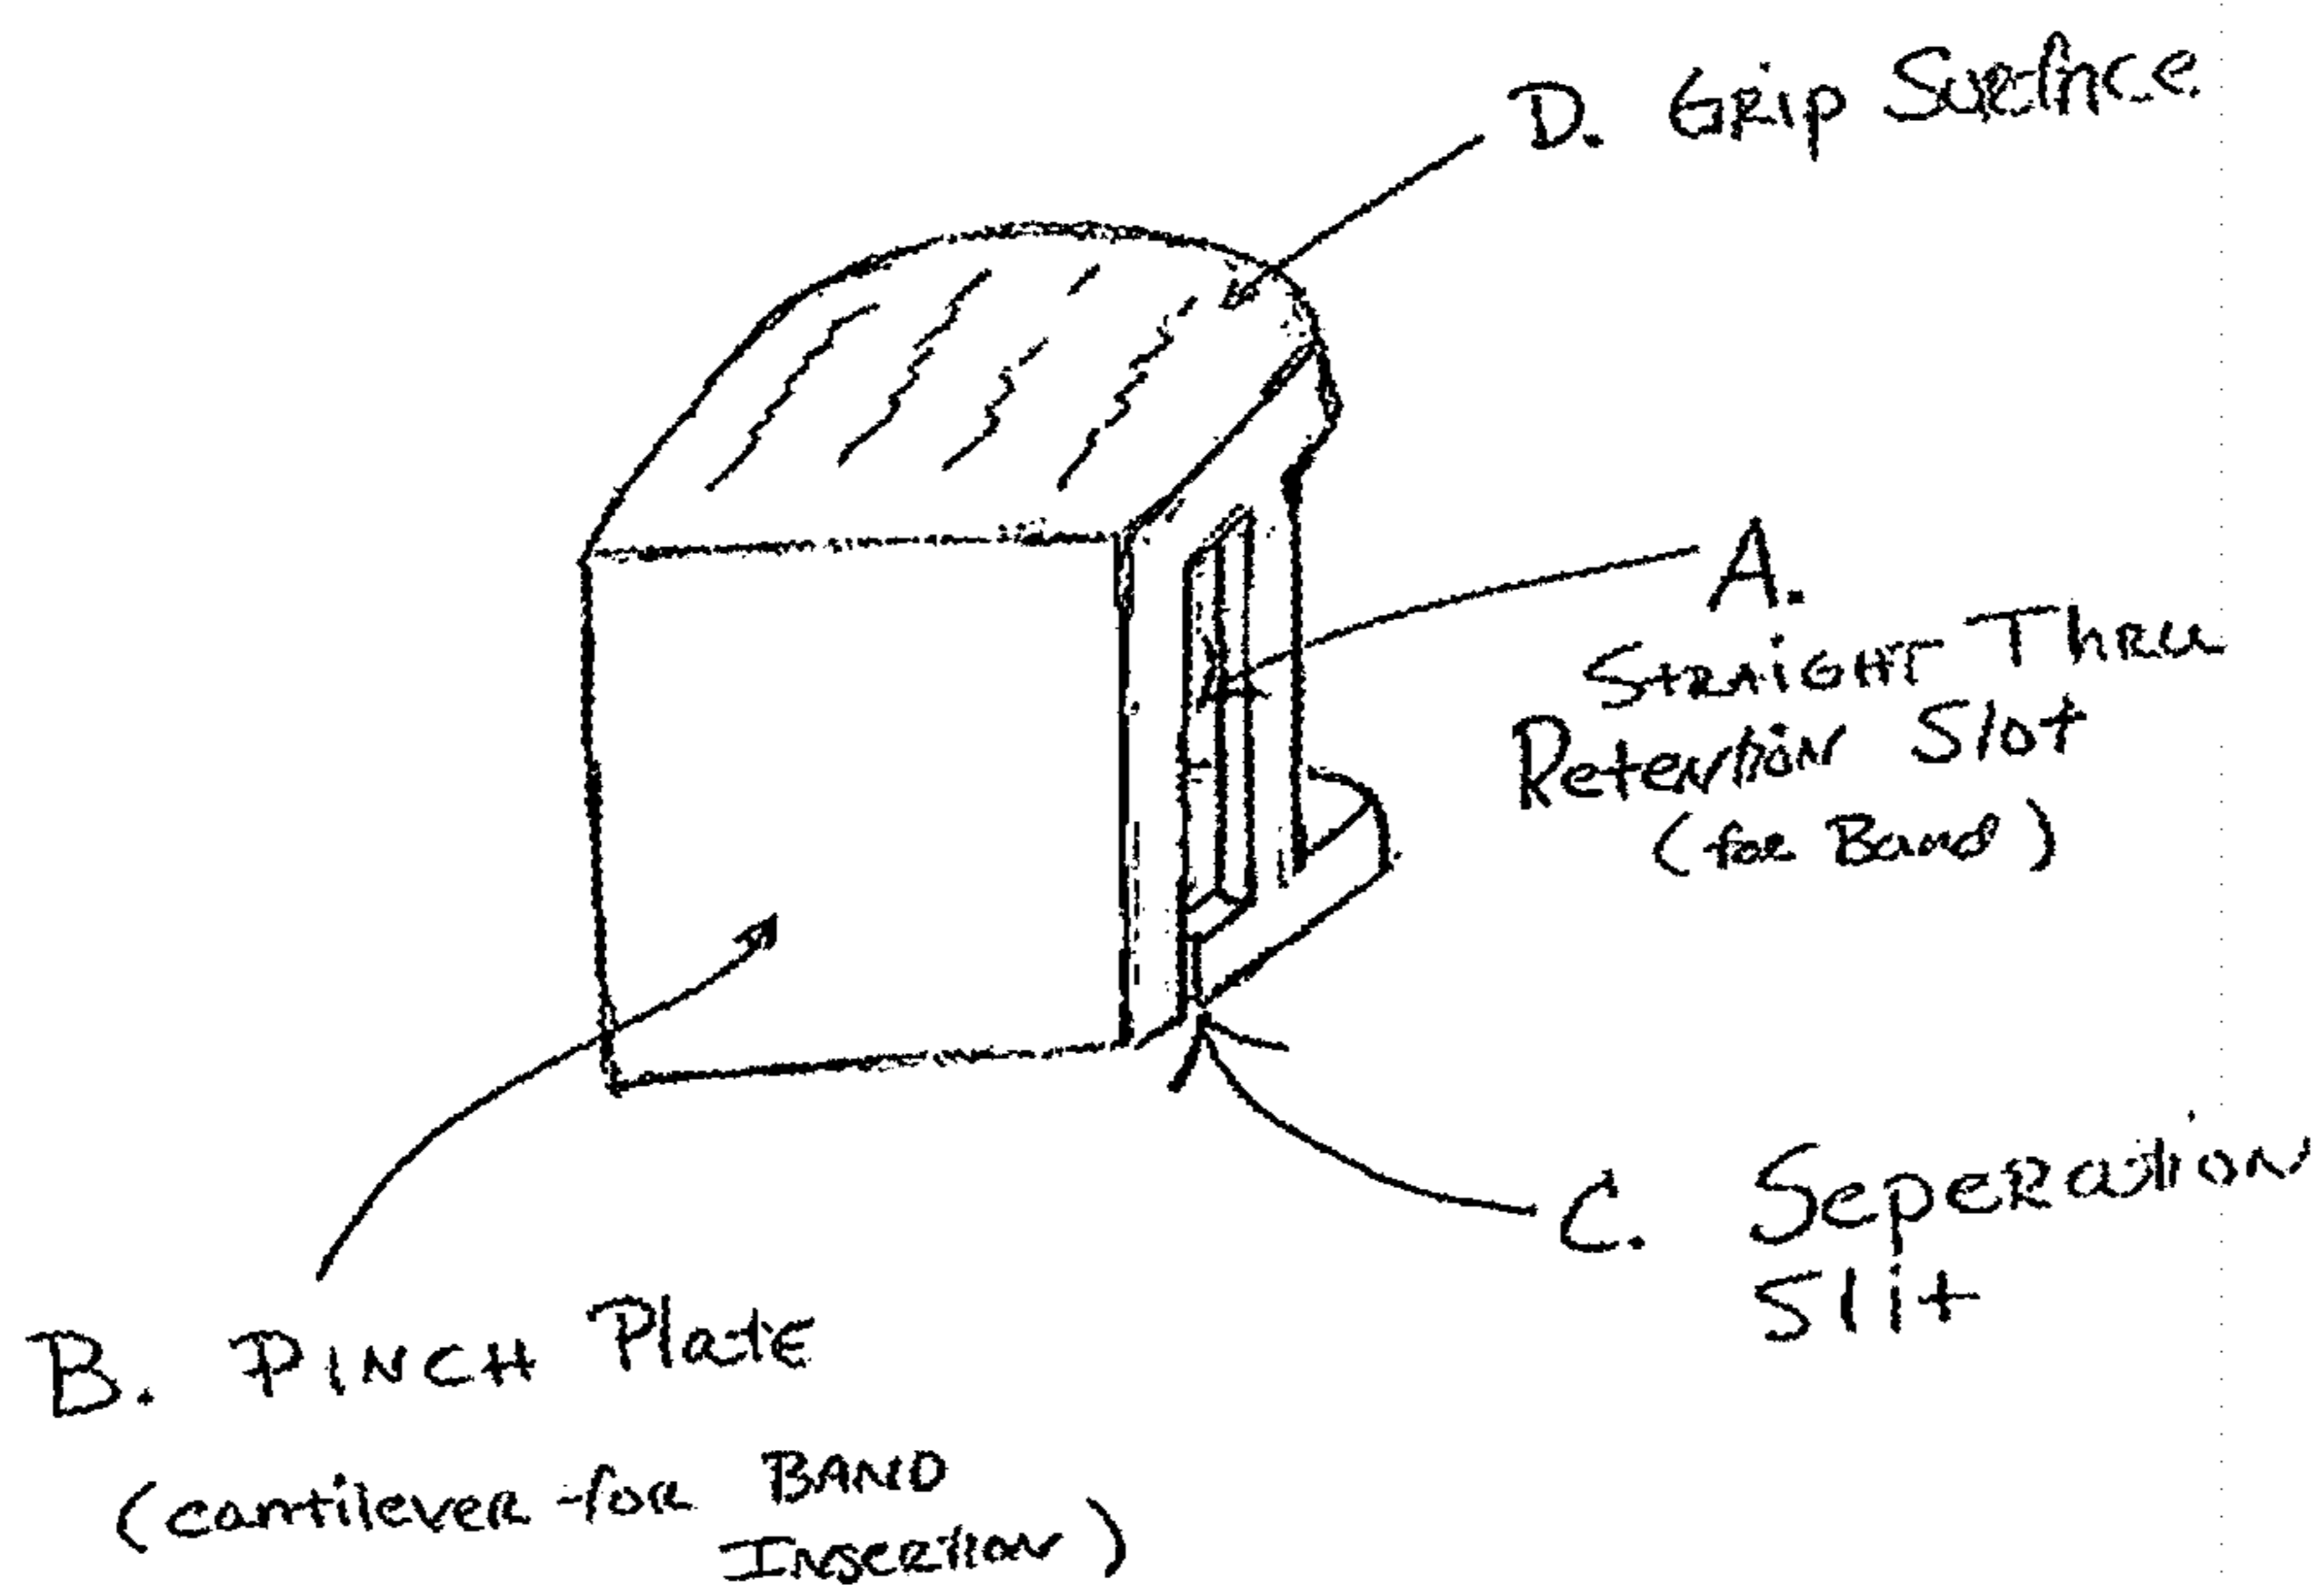 D. Grip Surface
A.
Straight Thru
Retention Slot
(for Band)
C. Seperation
Slit
B. Pinch Plate
(cantilever for Band
Insertion)